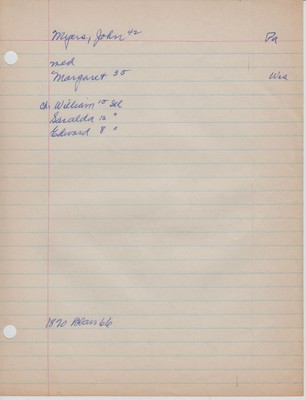 Myers, John 42 Pa
med
Margaret 35
ch William 15 Ill
Saralda 12 "
Edward 8 "
1870 66